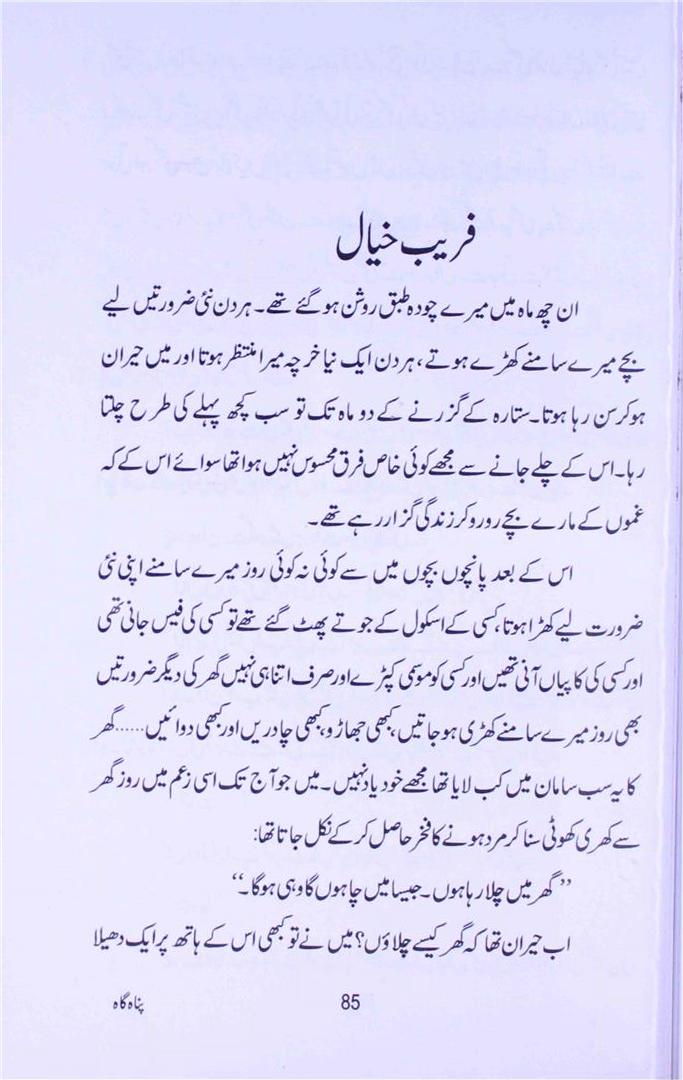 فریب خیال
ان چھ ماہ میں میرے چودہ طبق روشن ہو گئے تھے۔ ہر دن نئی ضرورتیں لیے
بچے میرے سامنے کھڑے ہوتے، ہر دن ایک نیا خرچہ میرا منتظر ہوتا اور میں حیران
ہو کر سن رہا ہوتا۔ ستارہ کے گزرنے کے دو ماہ تک تو سب کچھ پہلے کی طرح چلتا
رہا۔ اس کے چلے جانے سے مجھے کوئی خاص فرق محسوس نہیں ہوا تھا سوائے اس کے کہ
غموں کے مارے بچے رو رو کر زندگی گزار رہے تھے۔
اس کے بعد پانچوں بچوں میں سے کوئی نہ کوئی روز میرے سامنے اپنی نئی
ضرورت لیے کھڑا ہوتا، کسی کے اسکول کے جوتے پھٹ گئے تھے تو کسی کی فیس جانی تھی
اور کسی کی کاپیاں آنی تھیں اور کسی کو موسمی کپڑے اور صرف اتنا ہی نہیں گھر کی دیگر ضرورتیں
بھی روز میرے سامنے کھڑی ہو جاتیں، کبھی جھاڑو، کبھی چادریں اور کبھی دوائیں...... گھر
کا یہ سب سامان میں کب لایا تھا مجھے خود یاد نہیں۔ میں جو آج تک اسی زعم میں روز گھر
سے کھری کھوٹی سنا کر مرد ہونے کا فخر حاصل کر کے نکل جاتا تھا:
”گھر میں چلا رہا ہوں۔ جیسا میں چاہوں گا وہی ہو گا۔“
اب حیران تھا کہ گھر کیسے چلاؤں؟ میں نے تو کبھی اس کے ہاتھ پر ایک دھیلا
پناہ گاہ 85